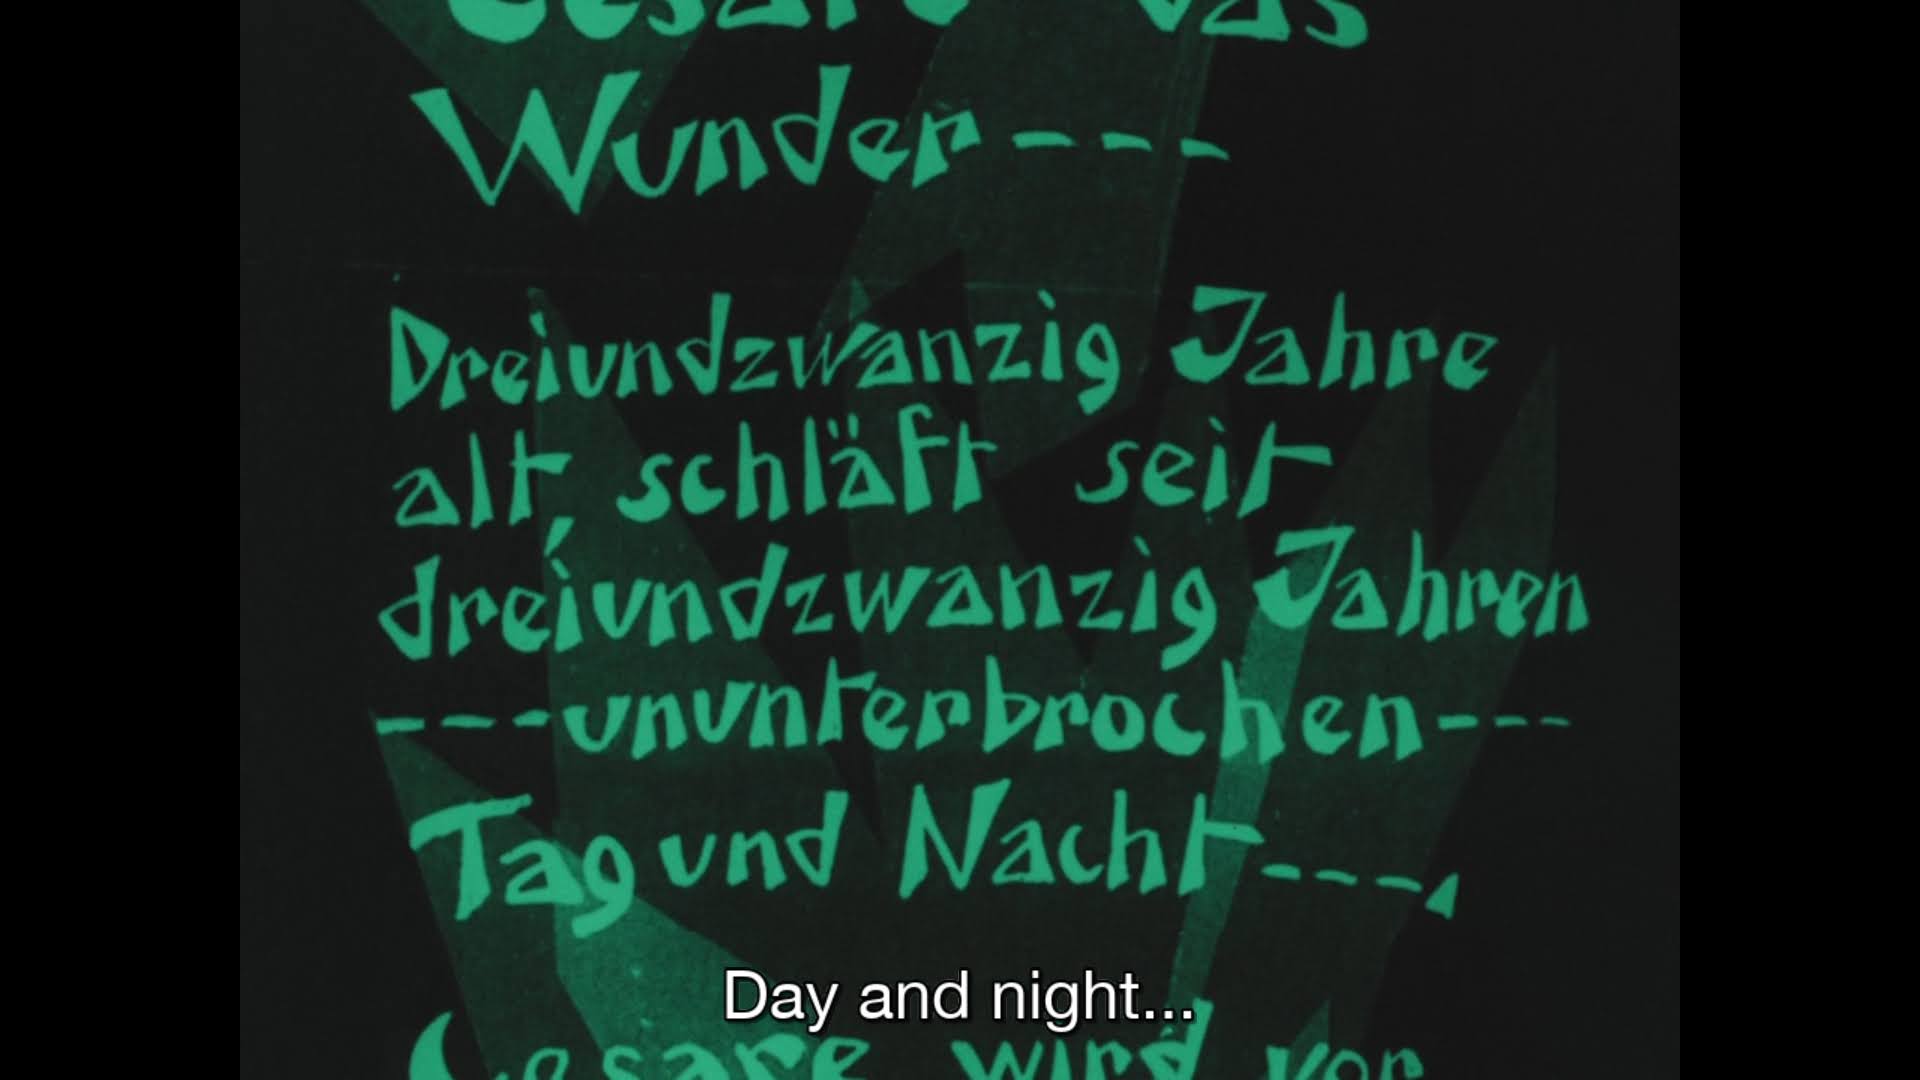 Cesare das
Wunder---
Dreiundzwanzig Jahre
alt, schläft seit
dreiundzwanzig Jahren
---ununterbrochen---
Tag und Nacht---,
Day and night...
Cesare wird vor